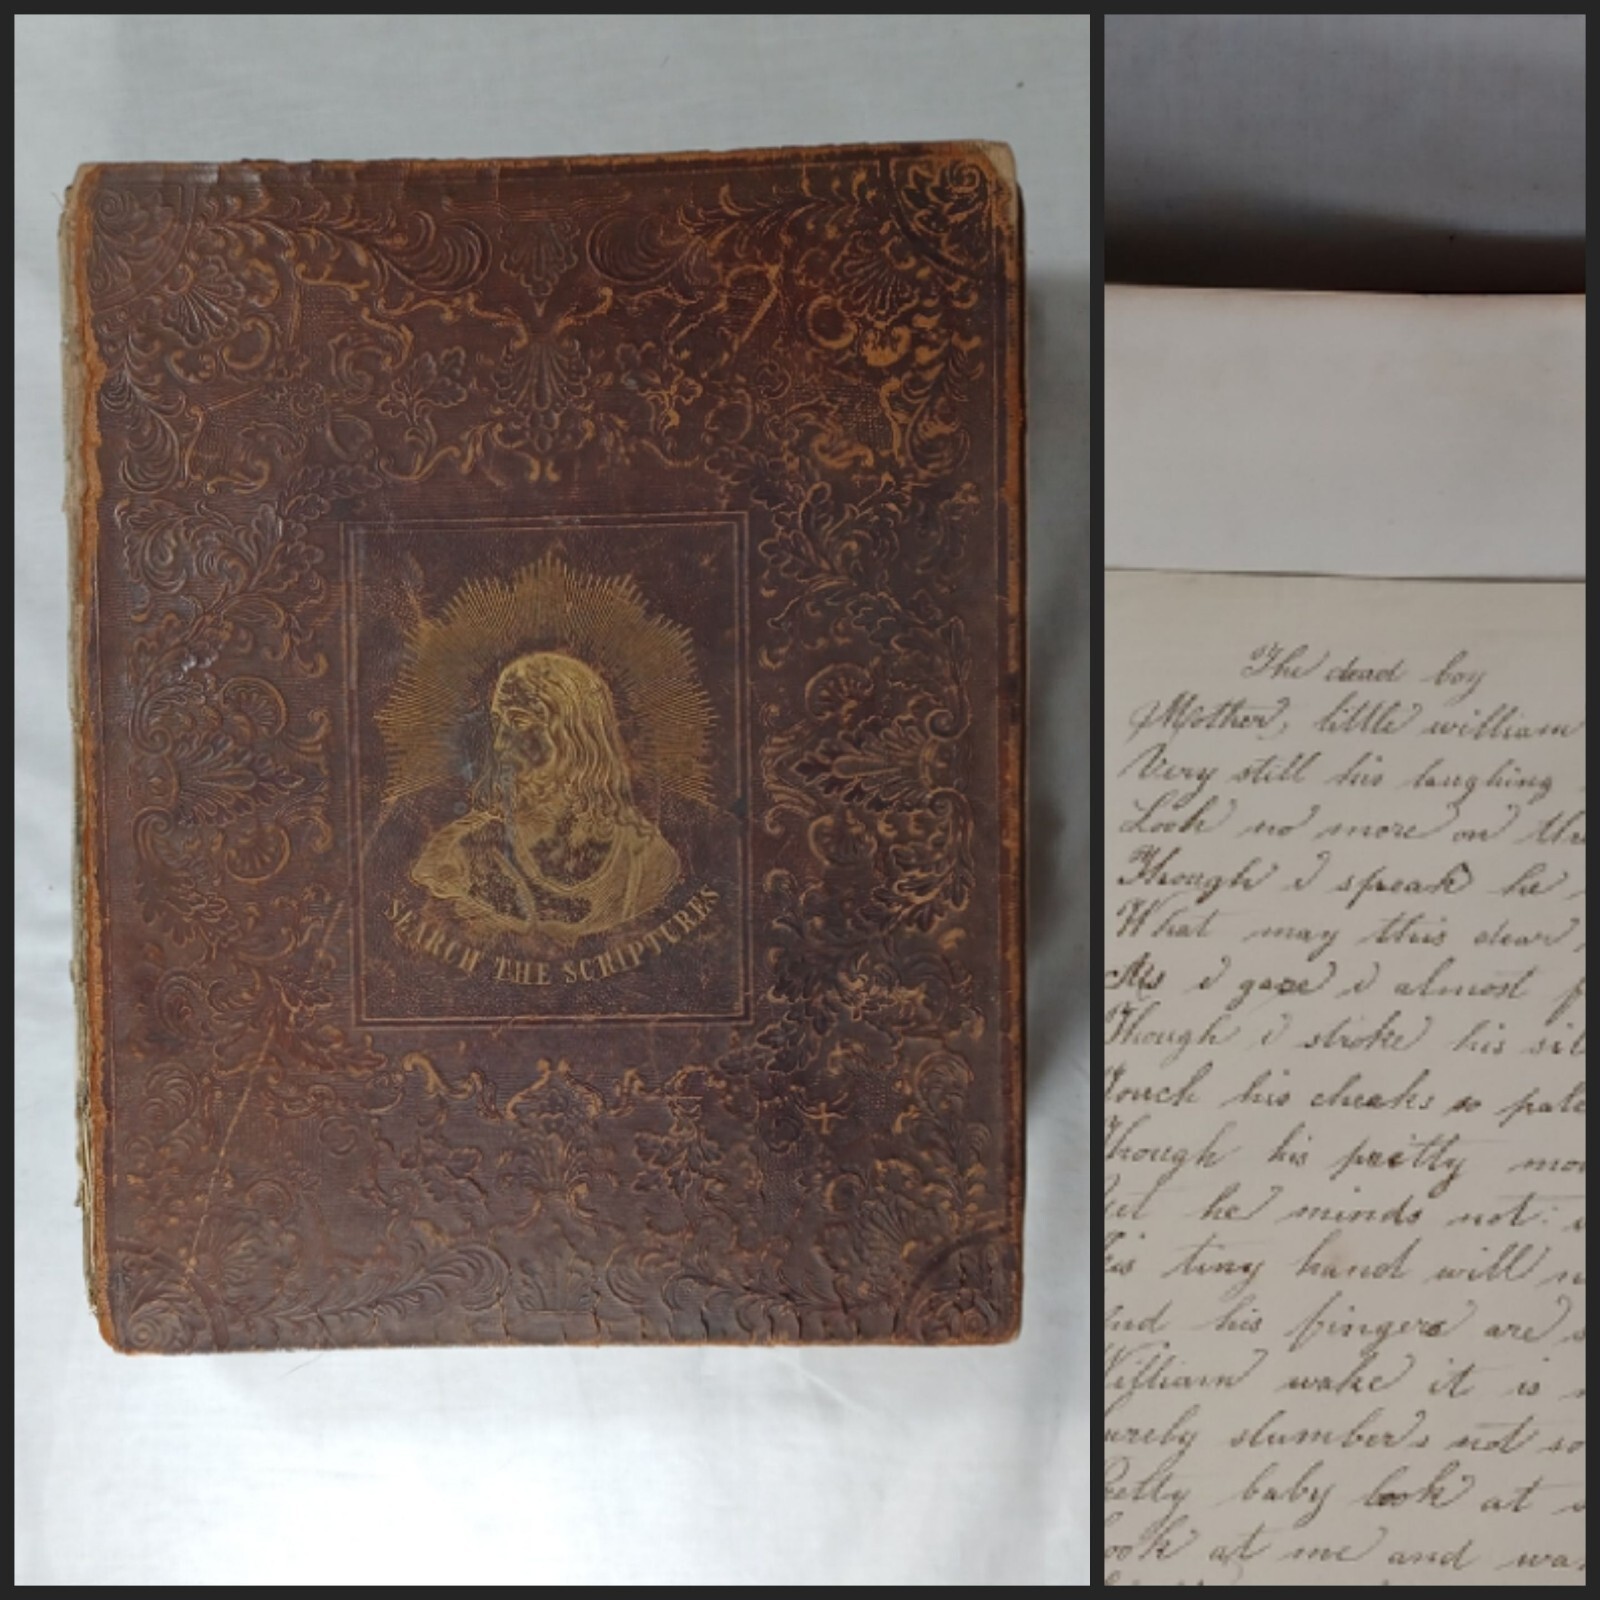 SEARCH THE SCRIPTURES
The dead boy
Mother, little william
Very still his laughing
Look no more on
Though i speak he
What may this dear
As i gaze i almost
Though i stroke his
Touch his cheeks so pale
Though his pretty
he minds not:
tiny hand will
his fingers are
William wake it is
slumbers not so
baby look at
at me and